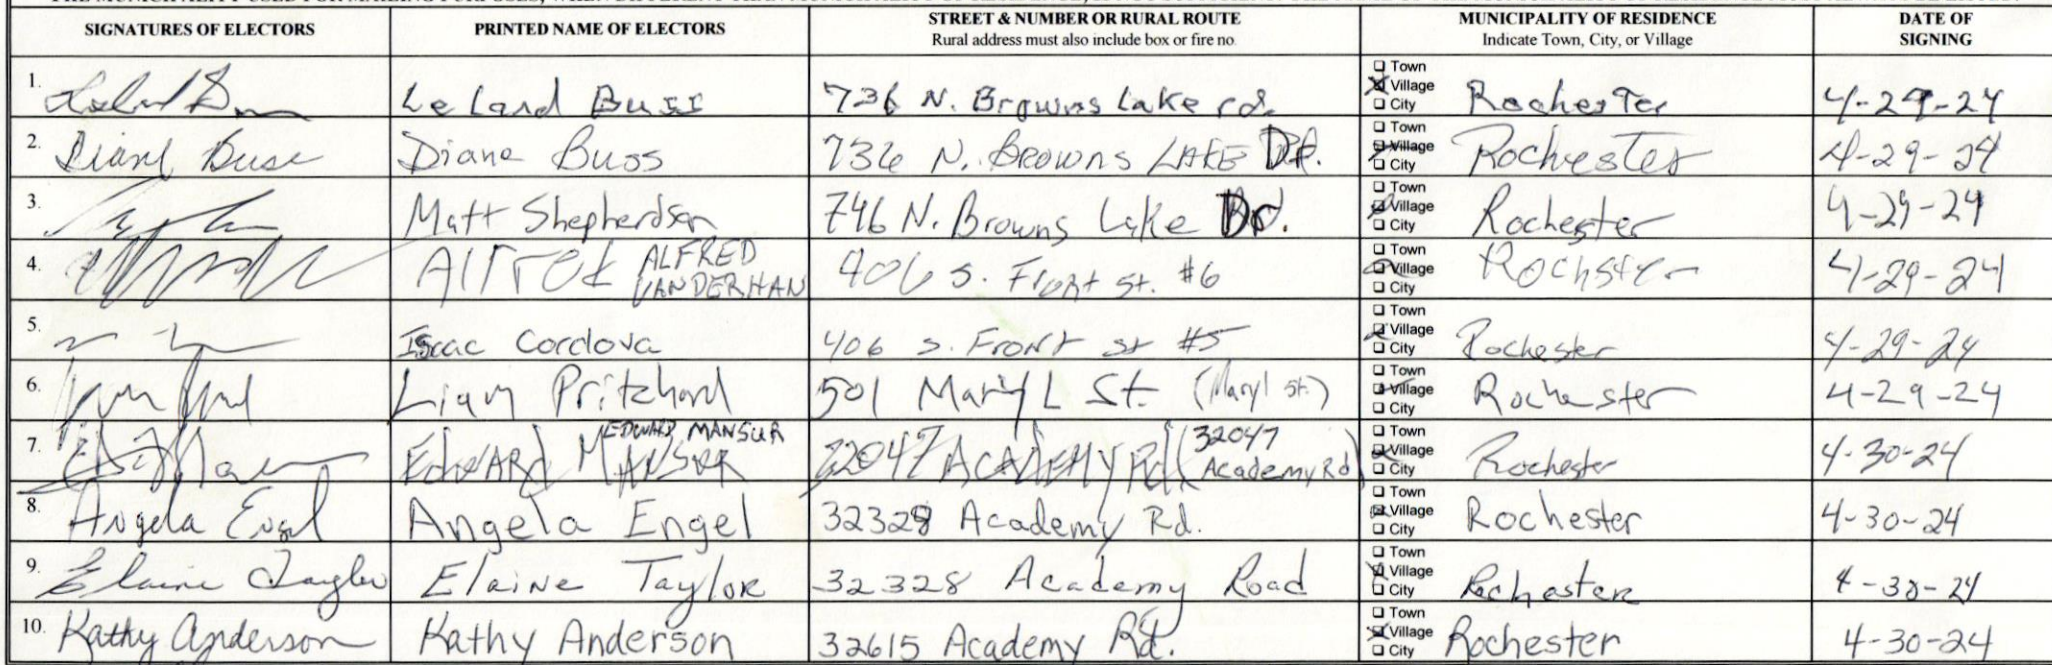 SIGNATURES OF ELECTORS PRINTED NAME OF ELECTORS STREET & NUMBER OR RURAL ROUTE MUNICIPALITY OF RESIDENCE DATE OF
Rural address must also include box or fire no. Indicate Town, City, or Village SIGNING
1. Le Land Buss 736 N. Browns Lake rd. ☐ Town ☒ Village ☐ City Rochester 4-29-24
2. Diane Buss Diane Buss 736 N. BROWNS LAKE DR. ☐ Town ☒ Village ☐ City Rochester 4-29-24
3. Matt Shepherdson 746 N. Browns Lake Dr. ☐ Town ☒ Village ☐ City Rochester 4-29-24
4. ALFRED VANDERHAN 406 S. Front St. #6 ☐ Town ☒ Village ☐ City Rochster 4-29-24
5. Isaac Cordova 406 S. Front st #5 ☐ Town ☒ Village ☐ City Rochester 4-29-24
6. Liam Pritchard 501 Mary L St. (Maryl st.) ☐ Town ☒ Village ☐ City Rochester 4-29-24
7. EDWARD MANSUR EDWARD MANSUR 32047 ACADEMY Rd (32047 Academy Rd) ☐ Town ☒ Village ☐ City Rochester 4-30-24
8. Angela Engel Angela Engel 32328 Academy Rd. ☐ Town ☒ Village ☐ City Rochester 4-30-24
9. Elaine Taylor Elaine Taylor 32328 Academy Road ☐ Town ☒ Village ☐ City Rochester 4-30-24
10. Kathy Anderson Kathy Anderson 32615 Academy Rd. ☐ Town ☒ Village ☐ City Rochester 4-30-24